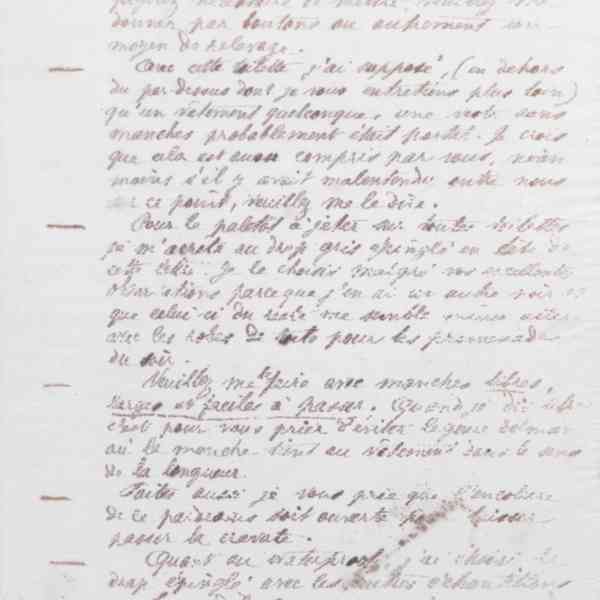 donner par boutons ou autrement un
moyen de relevage.
Avec cette toilette j'ai supposé, (en dehors
du par dessus dont je vous entretiens plus loin)
qu'un vêtement quelconque, une veste sans
manches probablement était portée. Je crois
que cela est aussi compris par vous, néan
moins s'il y avait malentendu entre nous
sur ce point, veuillez me le dire.
Pour le paletot à jeter sur toutes toilettes
je m'arrête au drap gris épinglé en tête de
cette lettre. Je le choisis malgré vos excellentes
observations parce que j'en ai un autre noir et
que celui ci du reste me semble
avec les robes de pour les promenades
du soir.
Veuillez me le faire avec manches libres,
larges et faciles à passer. Quand je dis libre
c'est pour vous prier d'éviter le genre dolman
où la manche tient au vêtement dans le sens
de la longueur.
Faites aussi je vous prie que l'encolure
de ce pardessus soit ouverte pour laisser
passer la cravate.
Quant au waterproof, j'ai choisi le
drap épinglé avec les autres échantillons